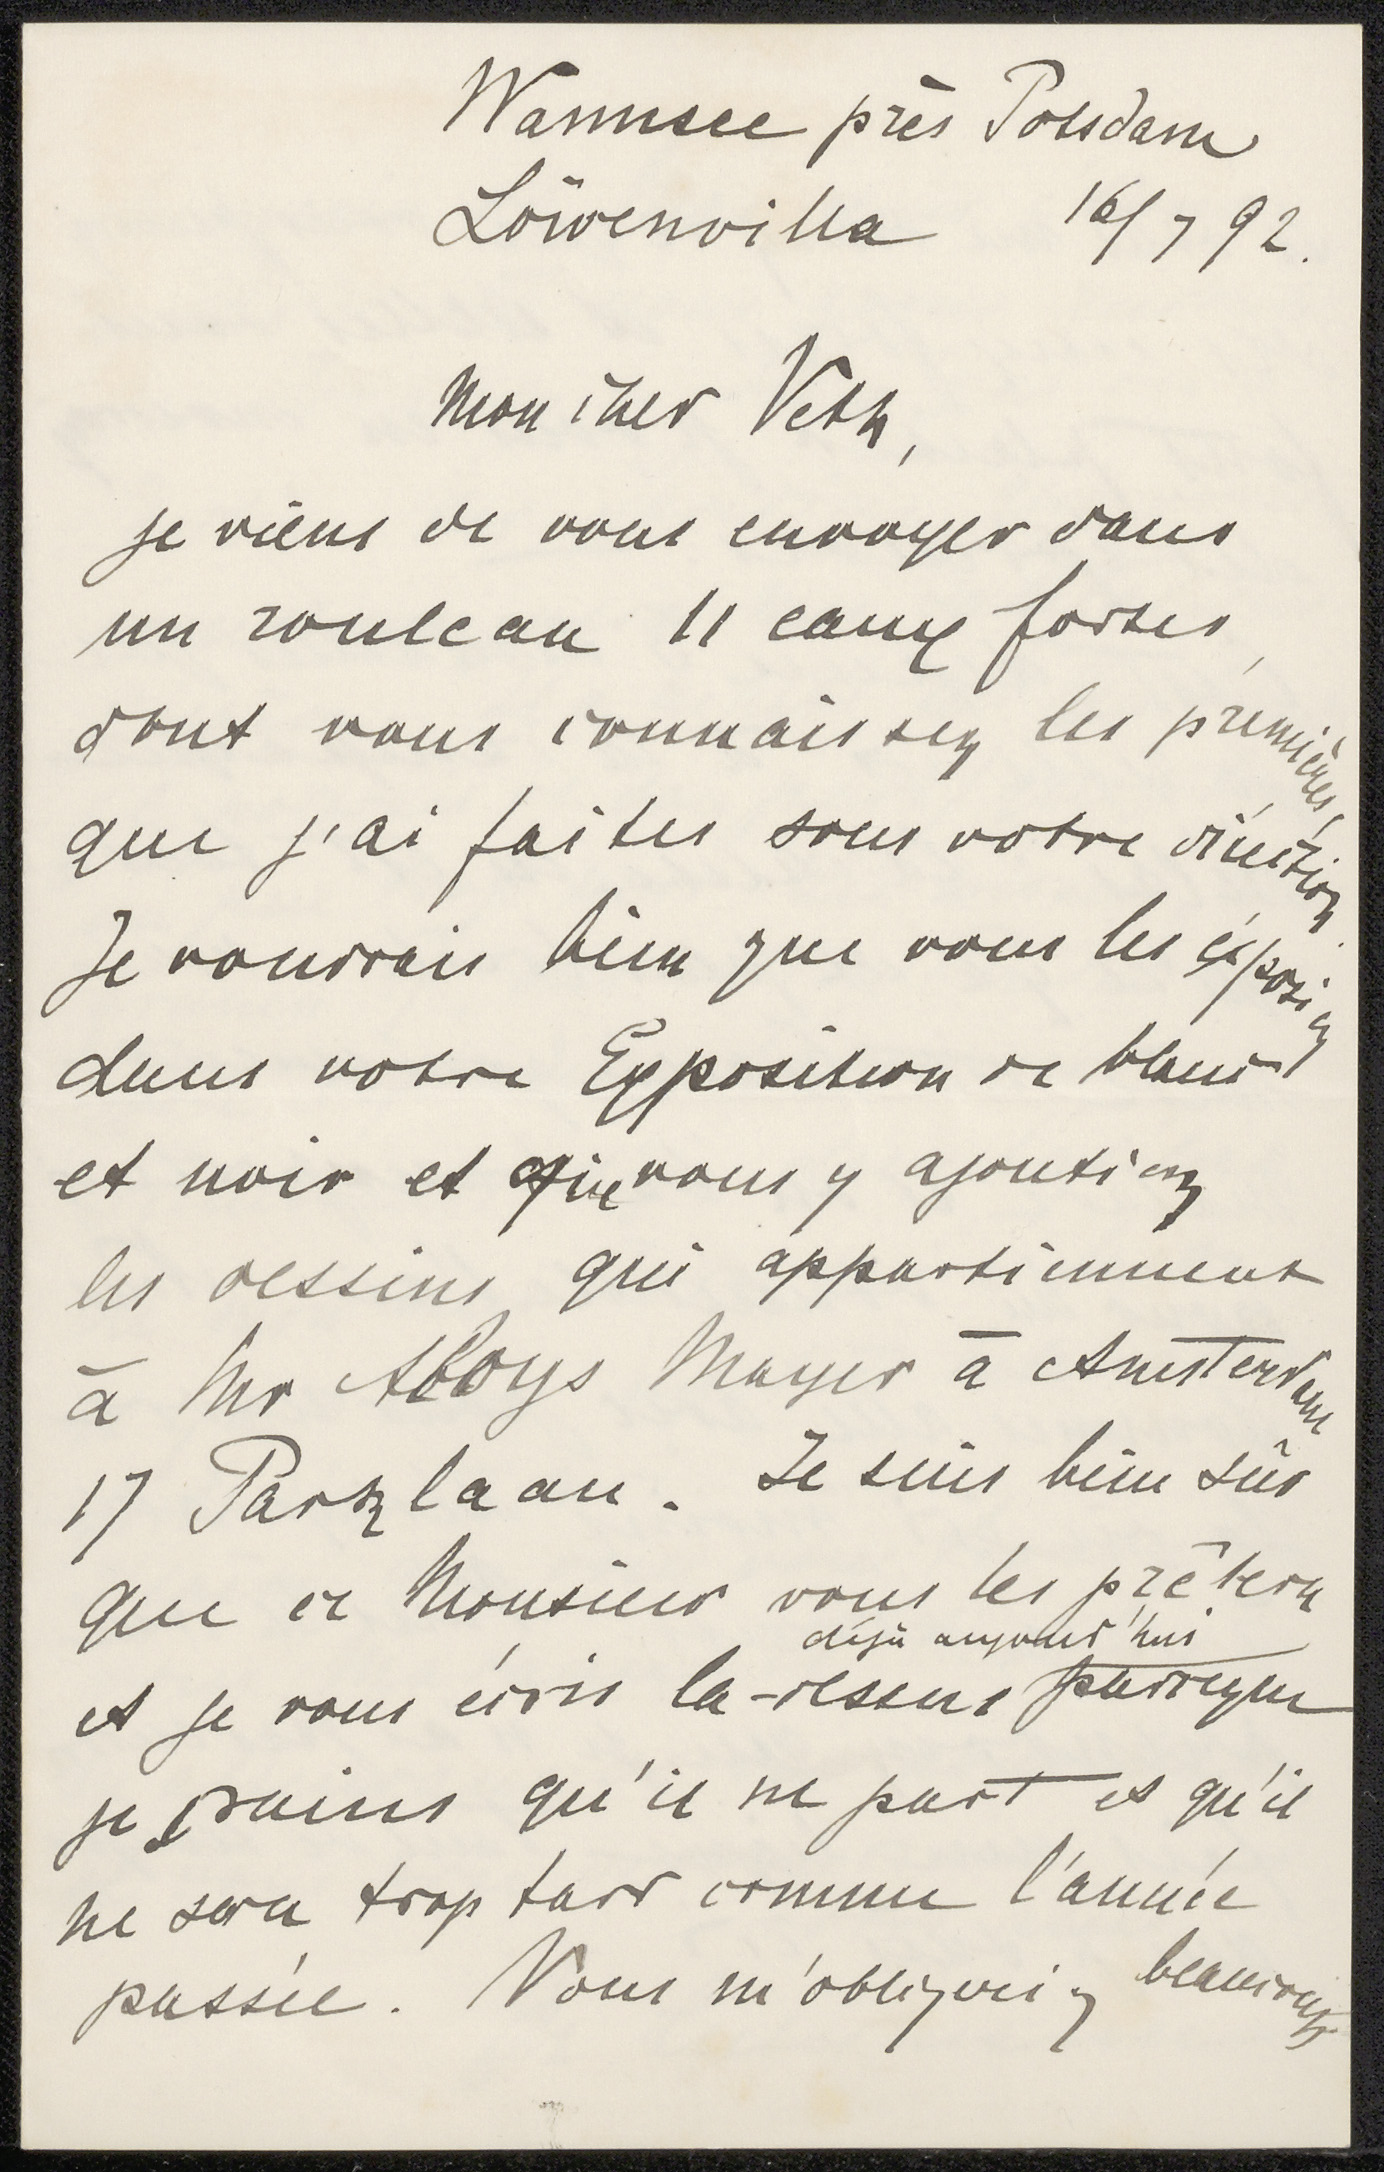 Wannsee près Potsdam
Löwenvilla 16/7 92.
Mon cher Veth,
je viens de vous envoyer dans
un rouleau 11 eaux fortes,
dont vous connaissez les premières,
que j'ai faites sous votre direction.
Je voudrais bien que vous les exposiez
dans votre Exposition de blanc
et noir et que vous y ajoutiez
les dessins qui appartiennent
à Mr Aloys Mayer à Amsterdam
17 Parklaan. Je suis bien sûr
que ce Monsieur vous les prêtera
déjà aujourd'hui
et je vous écris la-dessus parceque
je crains qu'il ne part et qu'il
ne sera trop tard comme l'année
passée. Vous m'obligeriez beaucoup